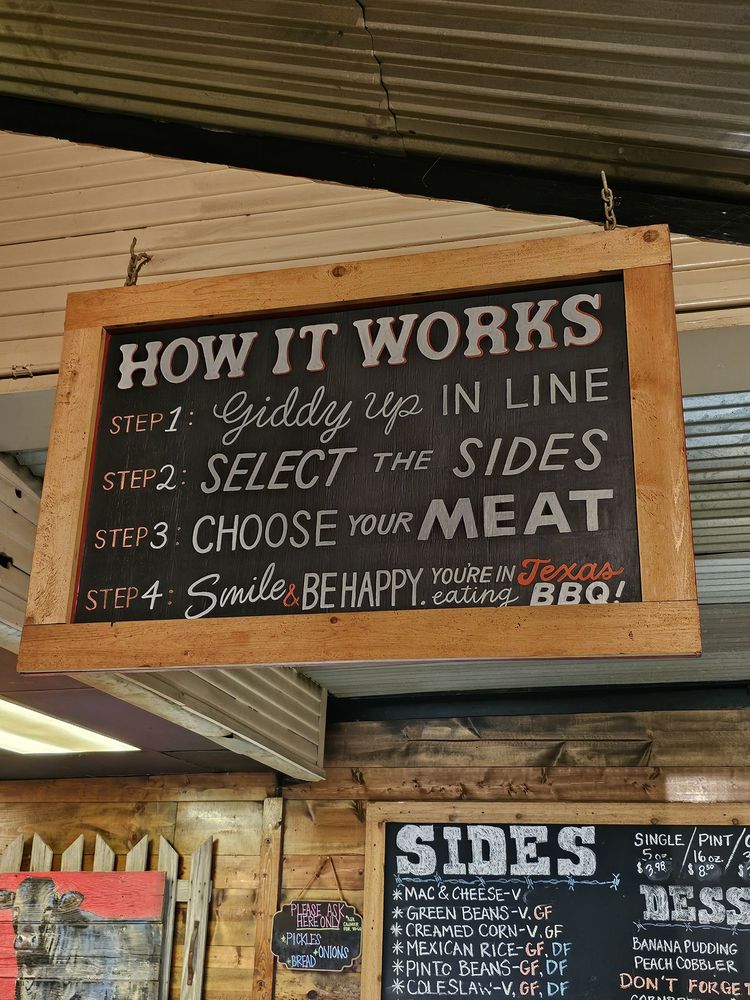 HOW IT WORKS
STEP 1: Giddy Up IN LINE
STEP 2: SELECT THE SIDES
STEP 3: CHOOSE YOUR MEAT
STEP 4: Smile & BE HAPPY. YOU'RE IN Texas
eating BBQ!
SIDES
SINGLE/PINT/
5oz. / 16oz. /
$3.98 $8.50
* MAC & CHEESE-V
* GREEN BEANS-V, GF
* CREAMED CORN-V, GF
* MEXICAN RICE-GF, DF
* PINTO BEANS-GF, DF
* COLESLAW-V, GF, DF
DESS
BANANA PUDDING
PEACH COBBLER
DON'T FORGET
PLEASE ASK
HERE ONLY
+PICKLES
+ONIONS
+BREAD